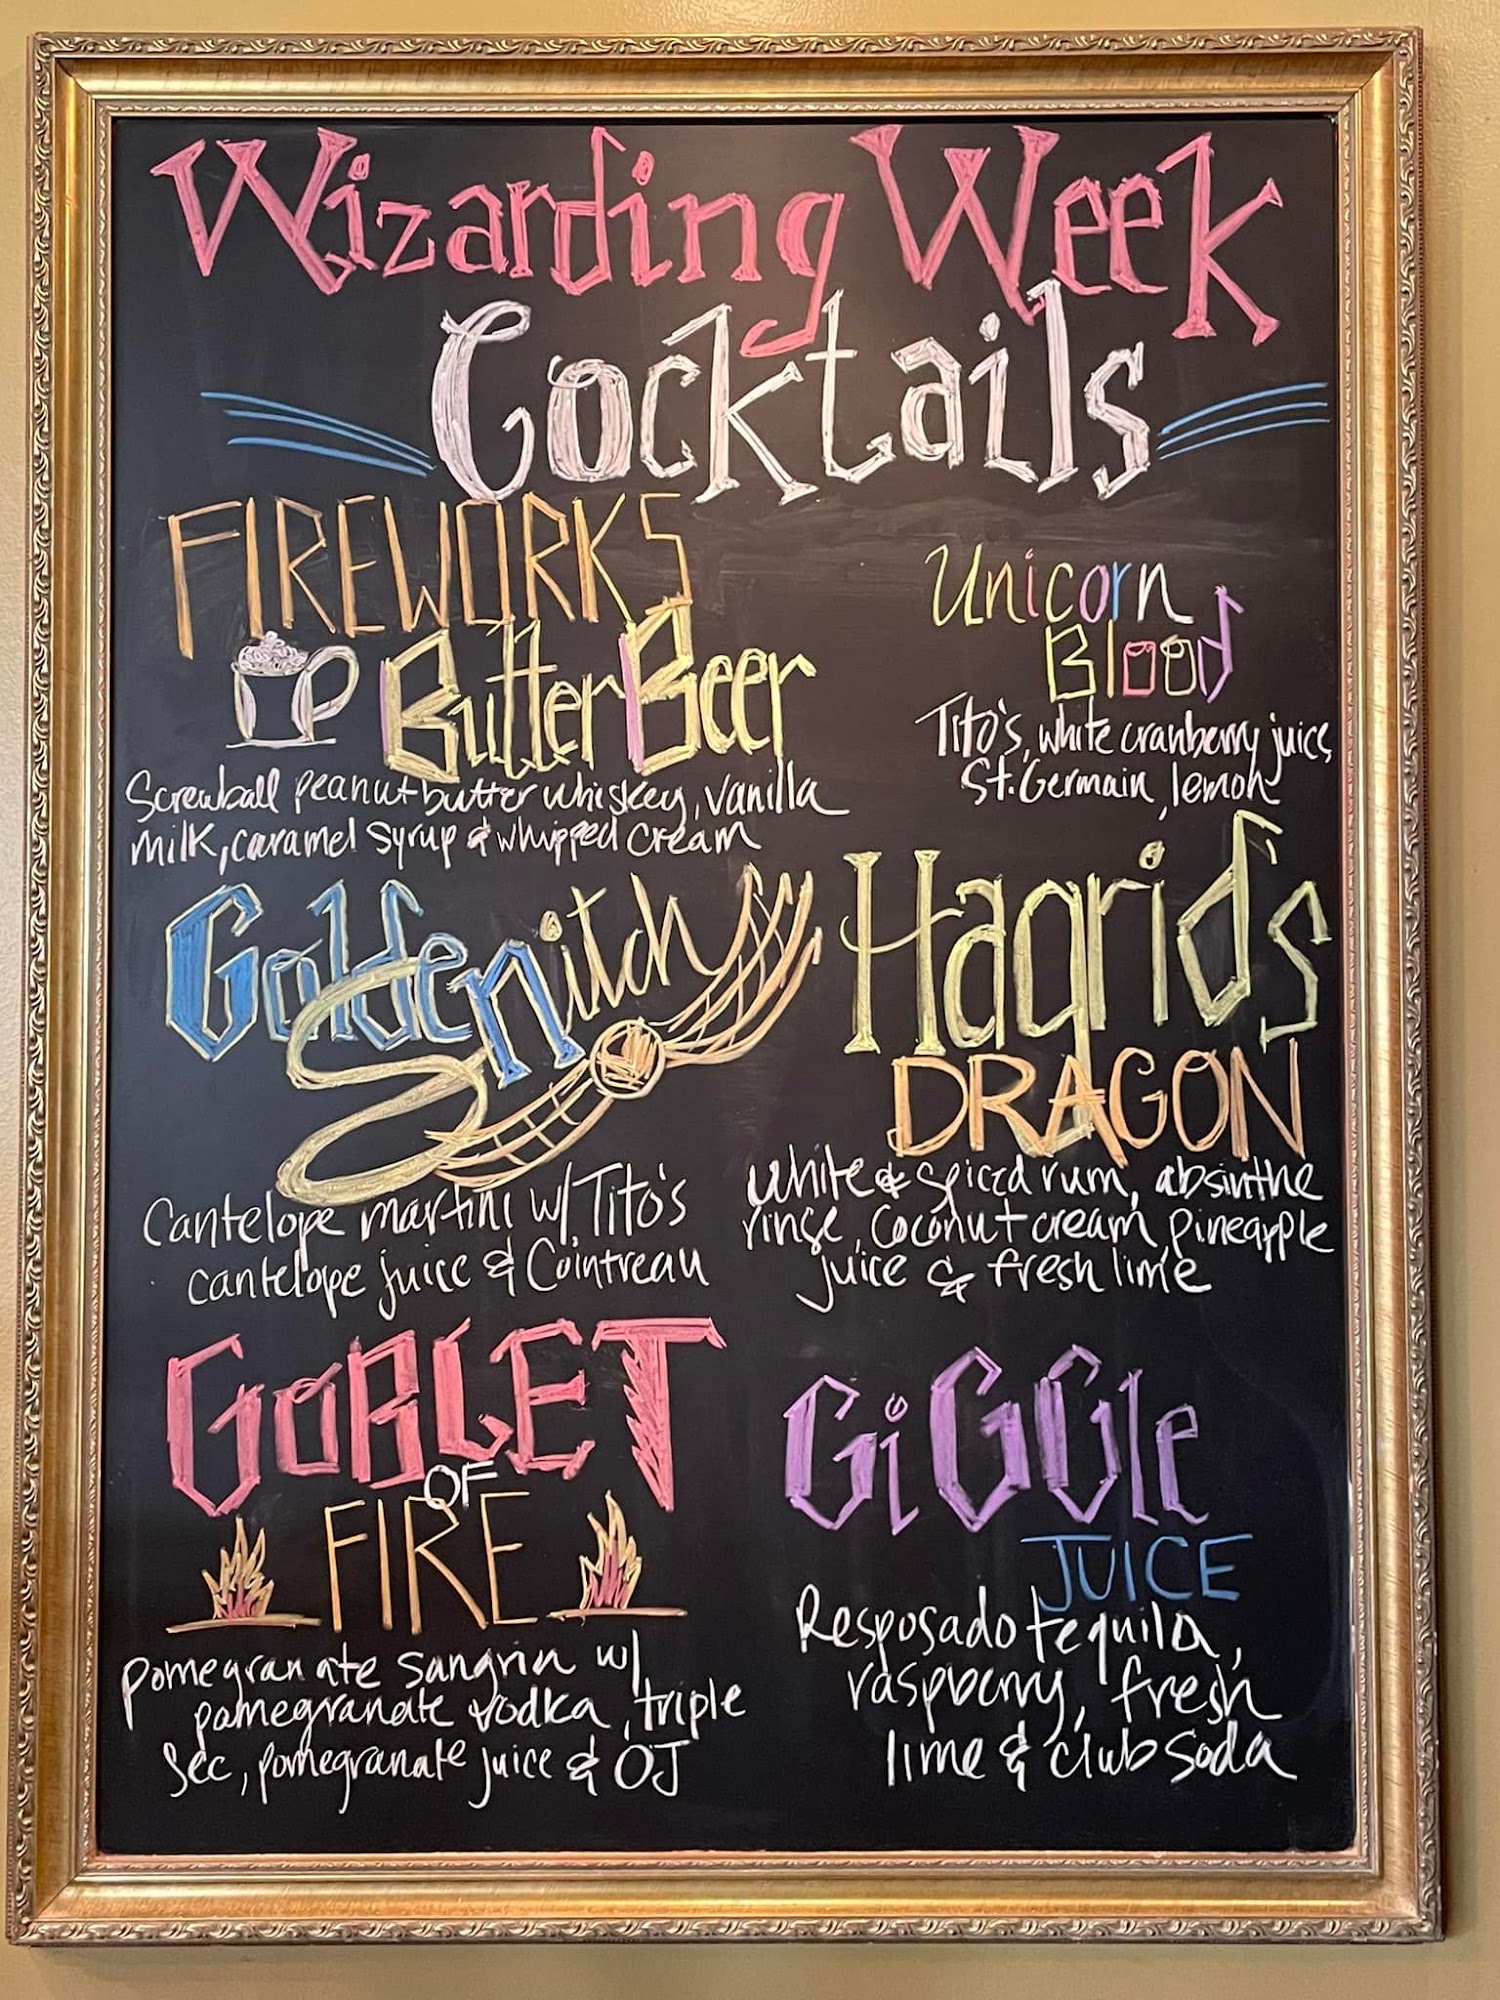 Wizarding Week
Cocktails
FIREWORKS
ButterBeer
Screwball peanut butter whiskey, vanilla
milk, caramel syrup & whipped cream
Unicorn
Blood
Tito's, white cranberry juice,
St. Germain, lemon
Golden
Snitch
Cantelope martini w/ Tito's
cantelope juice & Cointreau
Hagrid's
DRAGON
white & spiced rum, absinthe
rinse, coconut cream, pineapple
juice & fresh lime
GOBLET
OF
FIRE
pomegranate sangria w/
pomegranate vodka, triple
sec, pomegranate juice & OJ
GiGGle
JUICE
Resposado tequila,
raspberry, fresh
lime & club soda